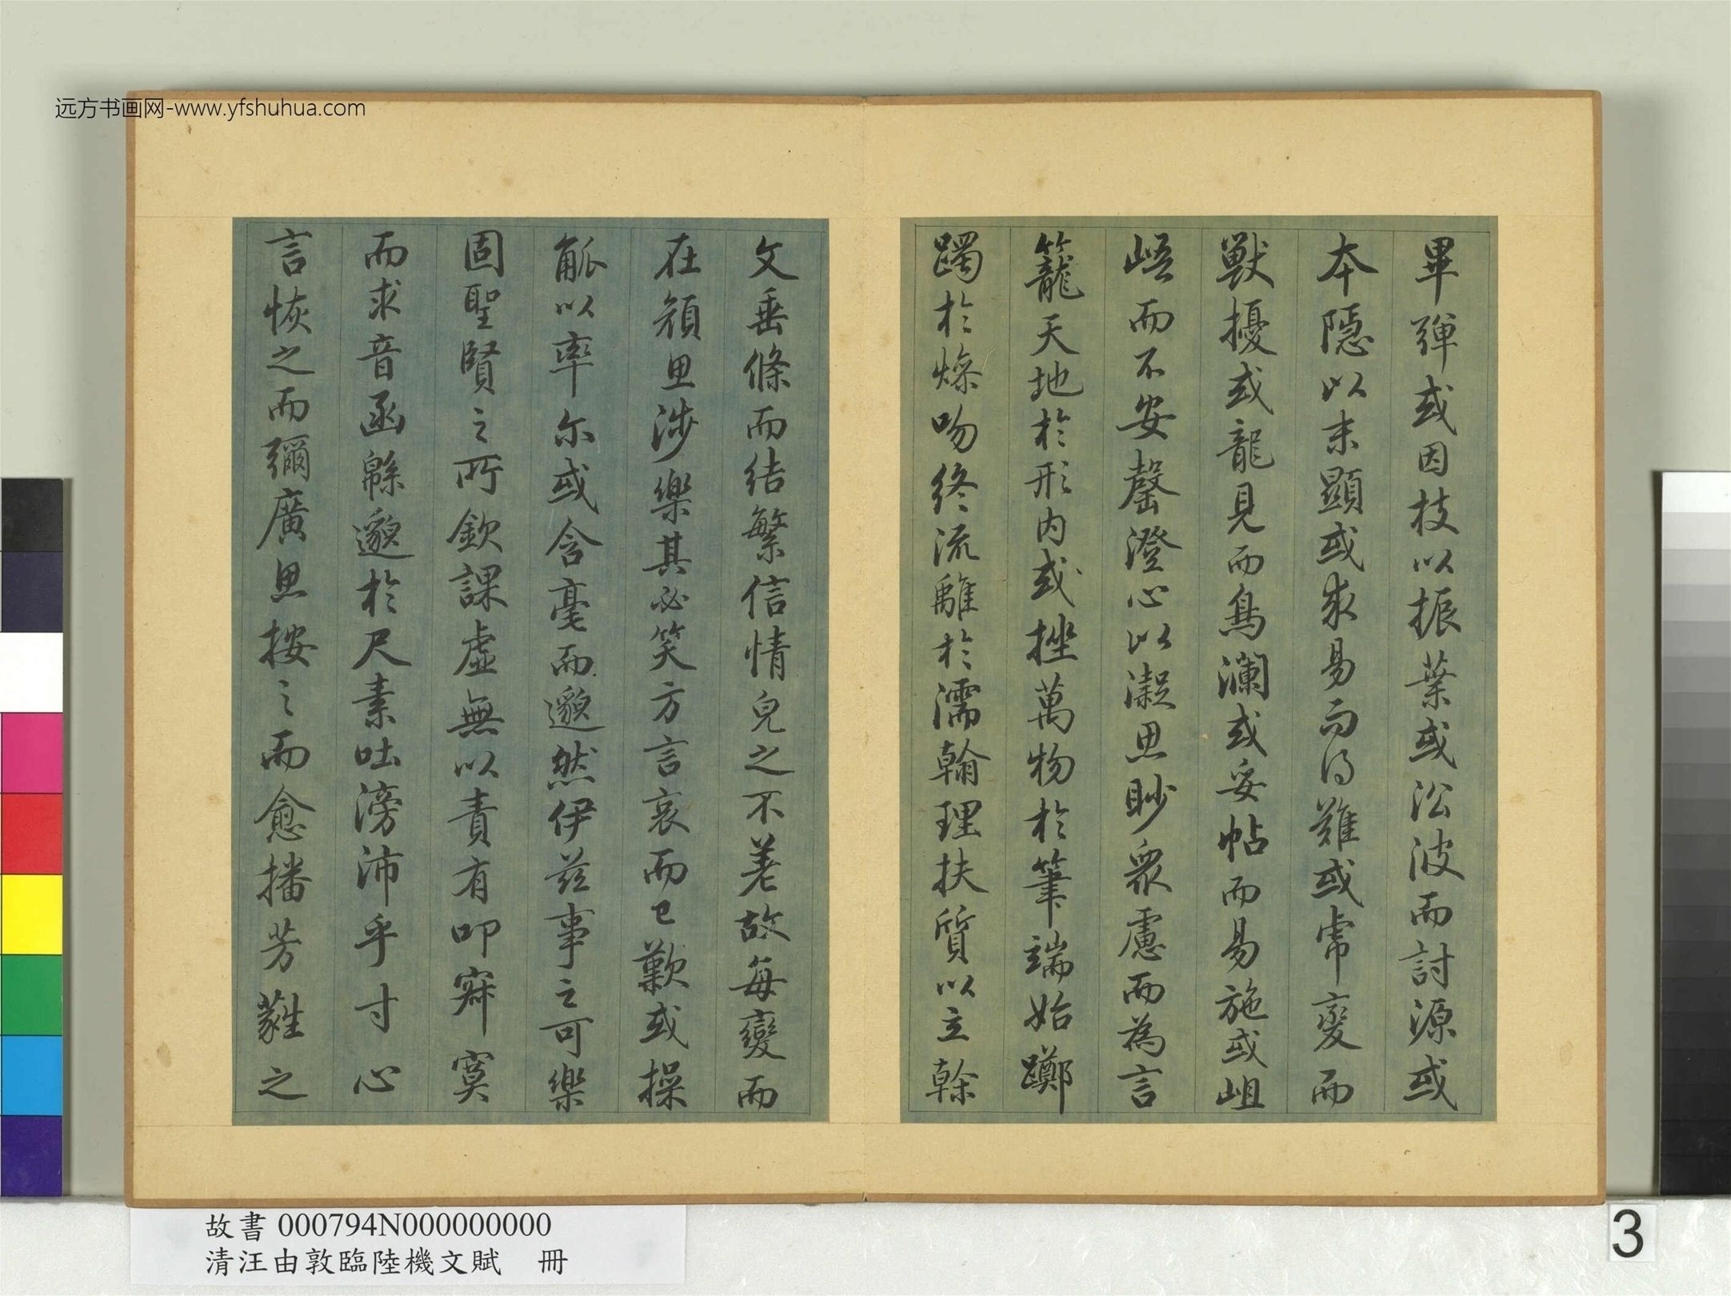 远方书画网-www.yfshuhua.com
畢彈或因枝以振葉或㳂波而討源或
本隱以末顯或求易而得難或虎變而
獸擾或龍見而鳥瀾或妥帖而易施或岨
峿而不安罄澄心以凝思眇衆慮而為言
籠天地於形内或挫萬物於筆端始躑
躅於燥吻終流離於濡翰理扶質以立幹
文垂條而結繁信情皃之不差故每變而
在顏思涉樂其必笑方言哀而已歎或操
觚以率尔或含毫而邈然伊茲事之可樂
固聖賢之所欽課虛無以責有叩寂寞
而求音函緜邈於尺素吐滂沛乎寸心
言恢之而彌廣思按之而愈播芳蕤之
故書 000794N000000000
清汪由敦臨陸機文賦　冊
3